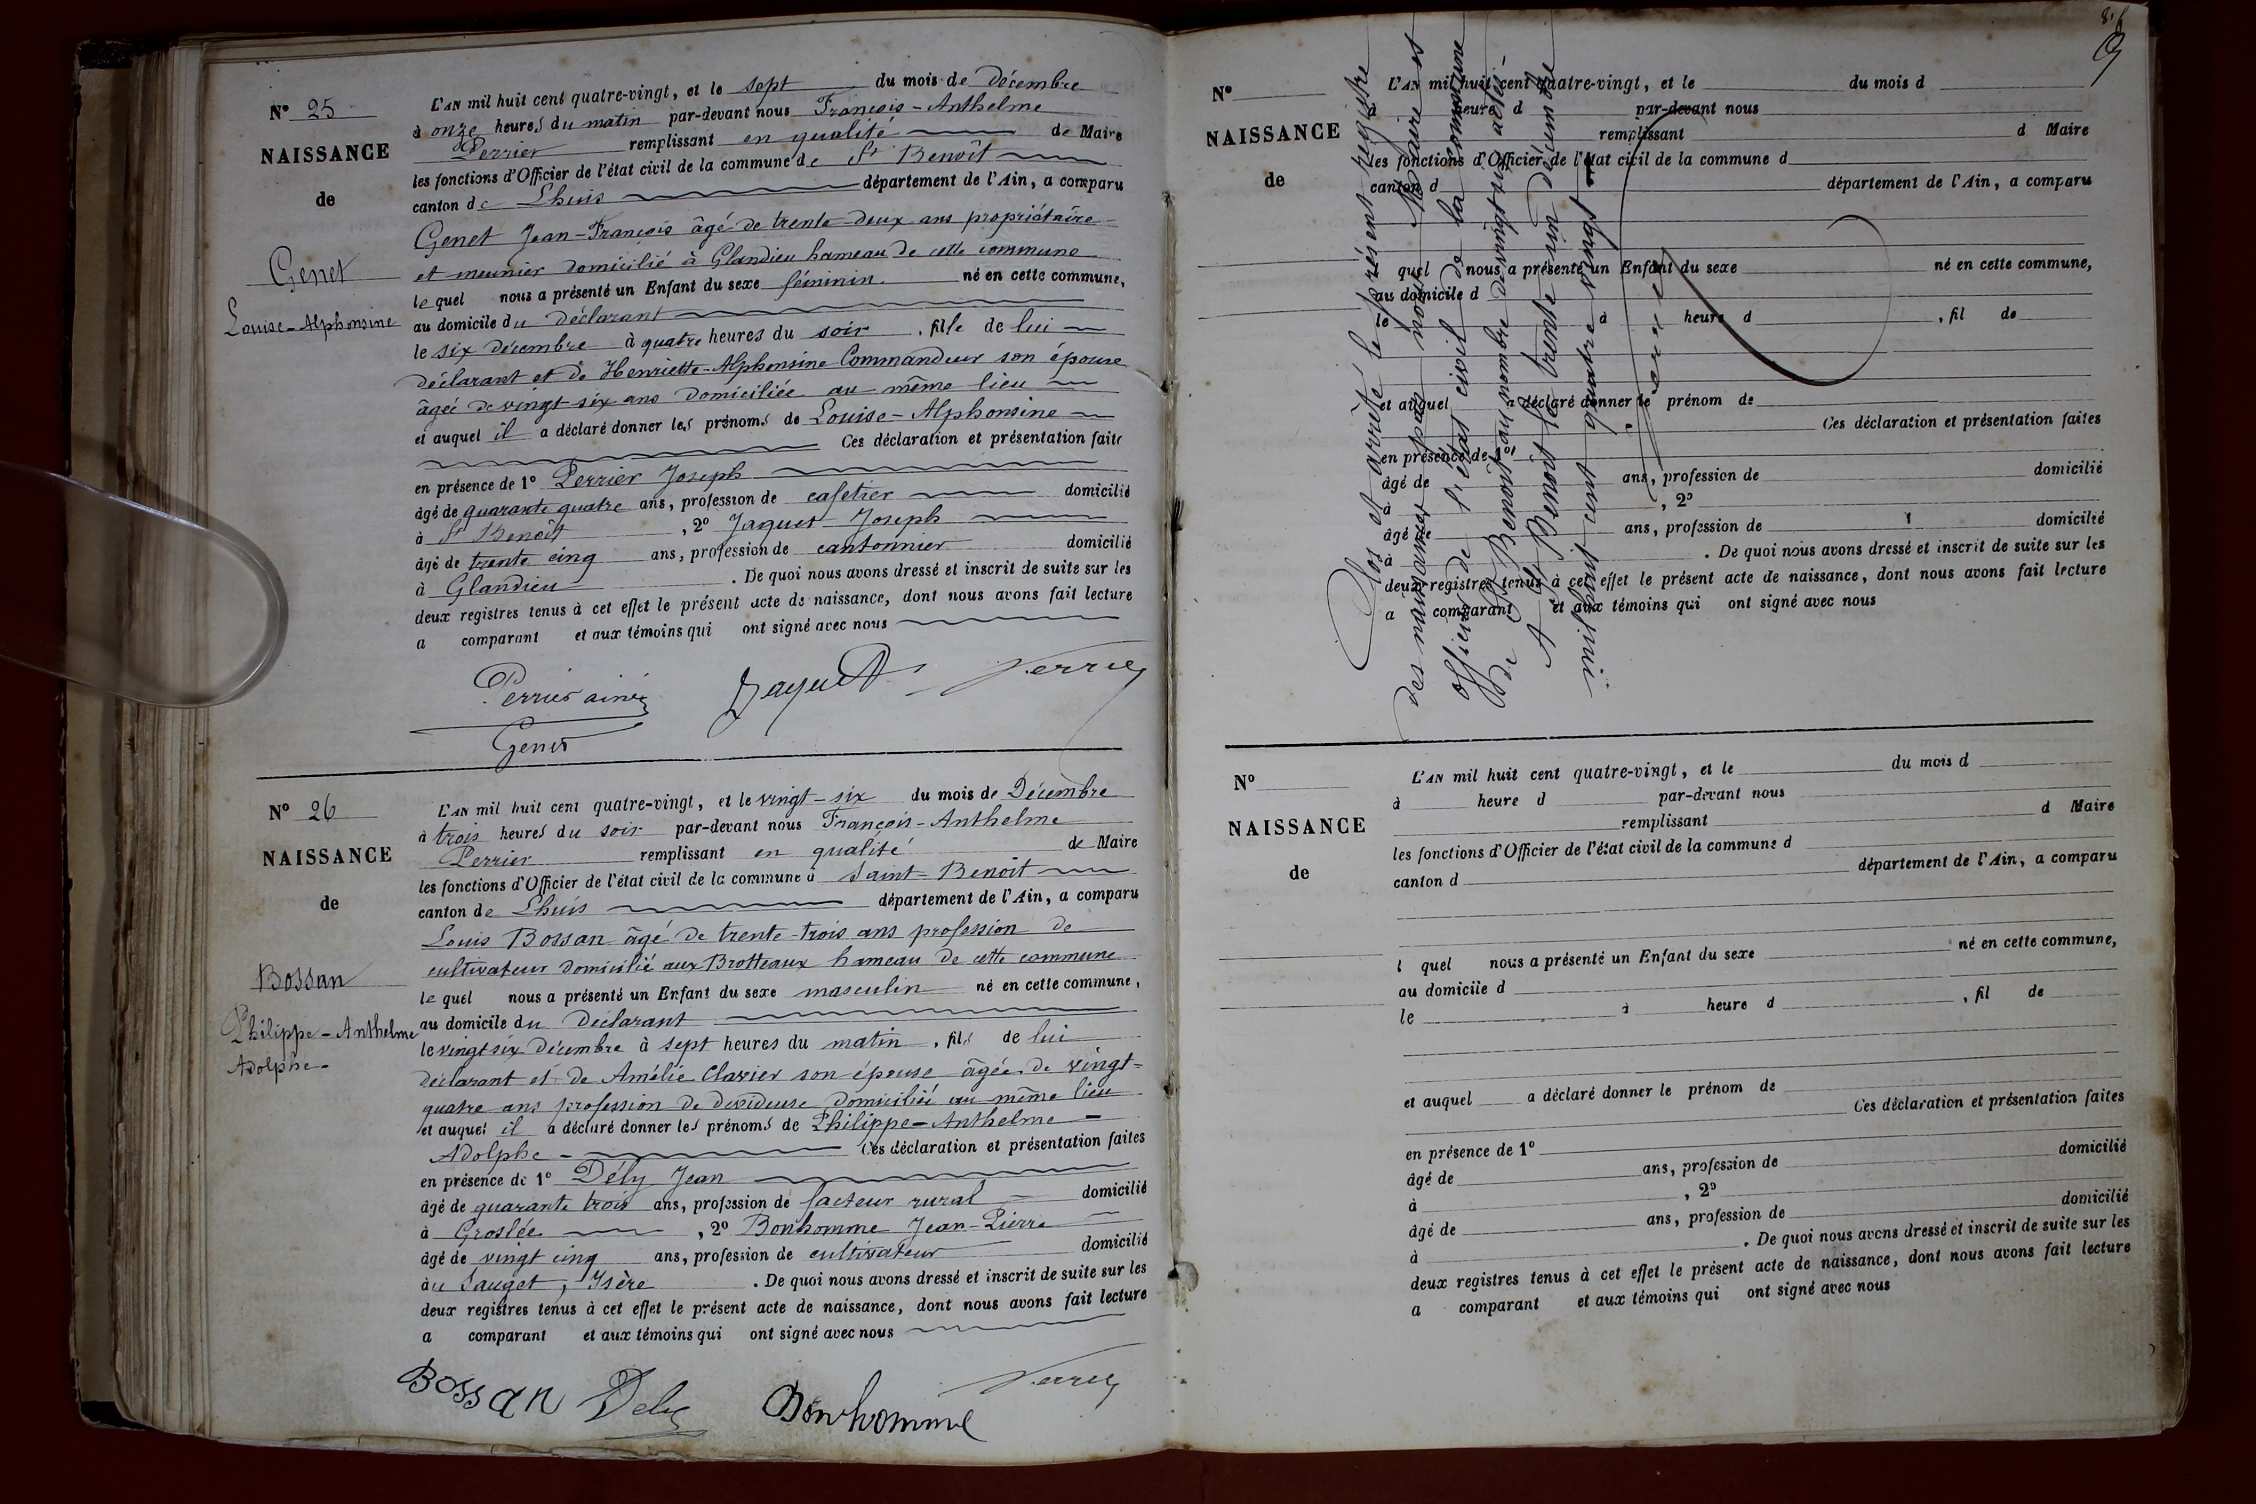 N° 25
NAISSANCE
de
Genet
Louise-Alphonsine
L'AN mil huit cent quatre-vingt, et le sept du mois de décembre
à onze heures du matin par-devant nous François-Anthelme
Perrier remplissant en qualité de Maire
les fonctions d'Officier de l'état civil de la commune de St Benoît
canton de Lhuis département de l'Ain, a comparu
Genet Jean-François âgé de trente-deux ans propriétaire
et meunier domicilié à Glandieu hameau de cette commune
lequel nous a présenté un Enfant du sexe féminin né en cette commune,
au domicile du déclarant
le six décembre à quatre heures du soir, fille de lui
déclarant et de Henriette-Alphonsine Commandeur son épouse
âgée de vingt-six ans domiciliée au même lieu
et auquel il a déclaré donner les prénoms de Louise-Alphonsine
Ces déclaration et présentation faites
en présence de 1° Perrier Joseph
âgé de quarante quatre ans, profession de cafetier domicilié
à St Benoît, 2° Jaquet Joseph
âgé de trente cinq ans, profession de cantonnier domicilié
à Glandieu. De quoi nous avons dressé et inscrit de suite sur les
deux registres tenus à cet effet le présent acte de naissance, dont nous avons fait lecture
a comparant et aux témoins qui ont signé avec nous
Perrier ainé Jaquet Perrier
Genet
N° 26
NAISSANCE
de
Bossan
Philippe-Anthelme
Adolphe-
L'AN mil huit cent quatre-vingt, et le vingt-six du mois de Décembre
à trois heures du soir par-devant nous François-Anthelme
Perrier remplissant en qualité de Maire
les fonctions d'Officier de l'état civil de la commune d Saint-Benoît
canton de Lhuis département de l'Ain, a comparu
Louis Bossan âgé de trente-trois ans profession de
cultivateur domicilié aux Brotteaux hameau de cette commune
lequel nous a présenté un Enfant du sexe masculin né en cette commune,
au domicile du déclarant
le vingt six décembre à sept heures du matin, fils de lui
déclarant et de Amélie Clavier son épouse âgée de vingt-
quatre ans profession de dévideuse domiciliée au même lieu
et auquel il a déclaré donner les prénoms de Philippe-Anthelme-
Adolphe- Ces déclaration et présentation faites
en présence de 1° Dély Jean
âgé de quarante trois ans, profession de facteur rural domicilié
à Groslée, 2° Bonhomme Jean-Pierre
âgé de vingt cinq ans, profession de cultivateur domicilié
au Sauget, Isère. De quoi nous avons dressé et inscrit de suite sur les
deux registres tenus à cet effet le présent acte de naissance, dont nous avons fait lecture
a comparant et aux témoins qui ont signé avec nous
Bossan Dely Bonhomme Perrier
9
N°
NAISSANCE
de
L'AN mil huit cent quatre-vingt, et le du mois d
à heure d par-devant nous
remplissant d Maire
les fonctions d'Officier de l'état civil de la commune d
canton d département de l'Ain, a comparu
quel nous a présenté un Enfant du sexe né en cette commune,
au domicile d
le à heure d, fil de
et auquel a déclaré donner le prénom de
Ces déclaration et présentation faites
en présence de 1°
âgé de ans, profession de domicilié
à, 2°
âgé de ans, profession de domicilié
à. De quoi nous avons dressé et inscrit de suite sur les
deux registres tenus à cet effet le présent acte de naissance, dont nous avons fait lecture
a comparant et aux témoins qui ont signé avec nous
Clos et arrêté le présent registre
des naissances par nous Maire et
officier de l'état civil de la commune
de St Benoit au nombre de vingt six actes-
A St Benoit le trente un décembre
mil huit cent quatre vingt
N°
NAISSANCE
de
L'AN mil huit cent quatre-vingt, et le du mois d
à heure d par-devant nous
remplissant d Maire
les fonctions d'Officier de l'état civil de la commune d
canton d département de l'Ain, a comparu
l quel nous a présenté un Enfant du sexe né en cette commune,
au domicile d
le à heure d, fil de
et auquel a déclaré donner le prénom de
Ces déclaration et présentation faites
en présence de 1°
âgé de ans, profession de domicilié
à, 2°
âgé de ans, profession de domicilié
à. De quoi nous avons dressé et inscrit de suite sur les
deux registres tenus à cet effet le présent acte de naissance, dont nous avons fait lecture
a comparant et aux témoins qui ont signé avec nous